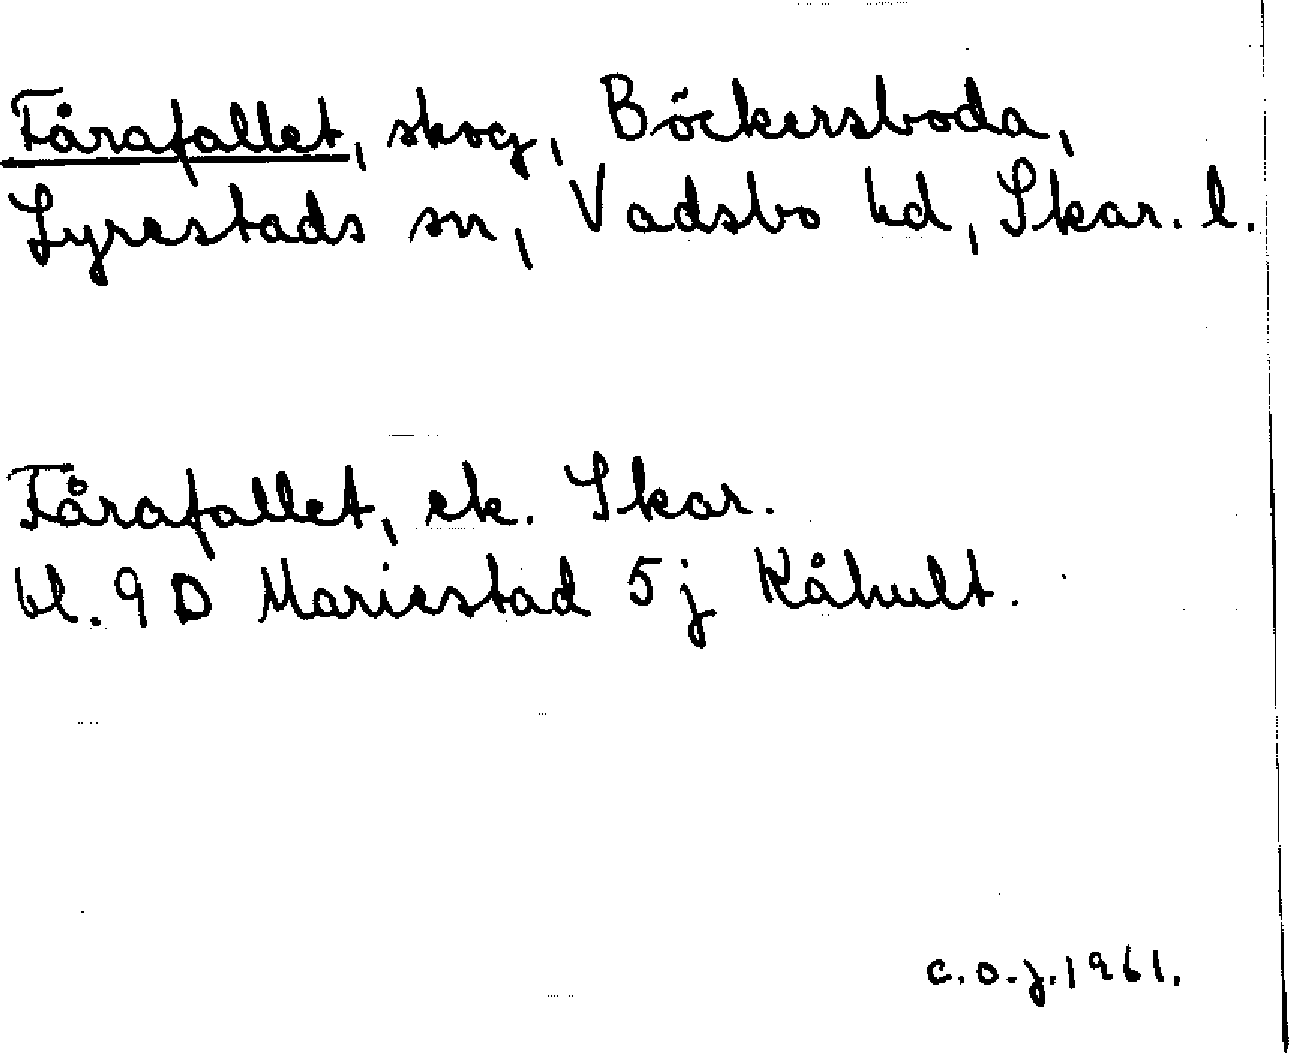 Fårafallet, skog, Böckersboda,
Lyrestads sn, Vadsbo hd, Skar. l.
Fårafallet, ek. Skar.
bl. 9 D Mariestad 5 j Kåhult.
c.o.j. 1961.